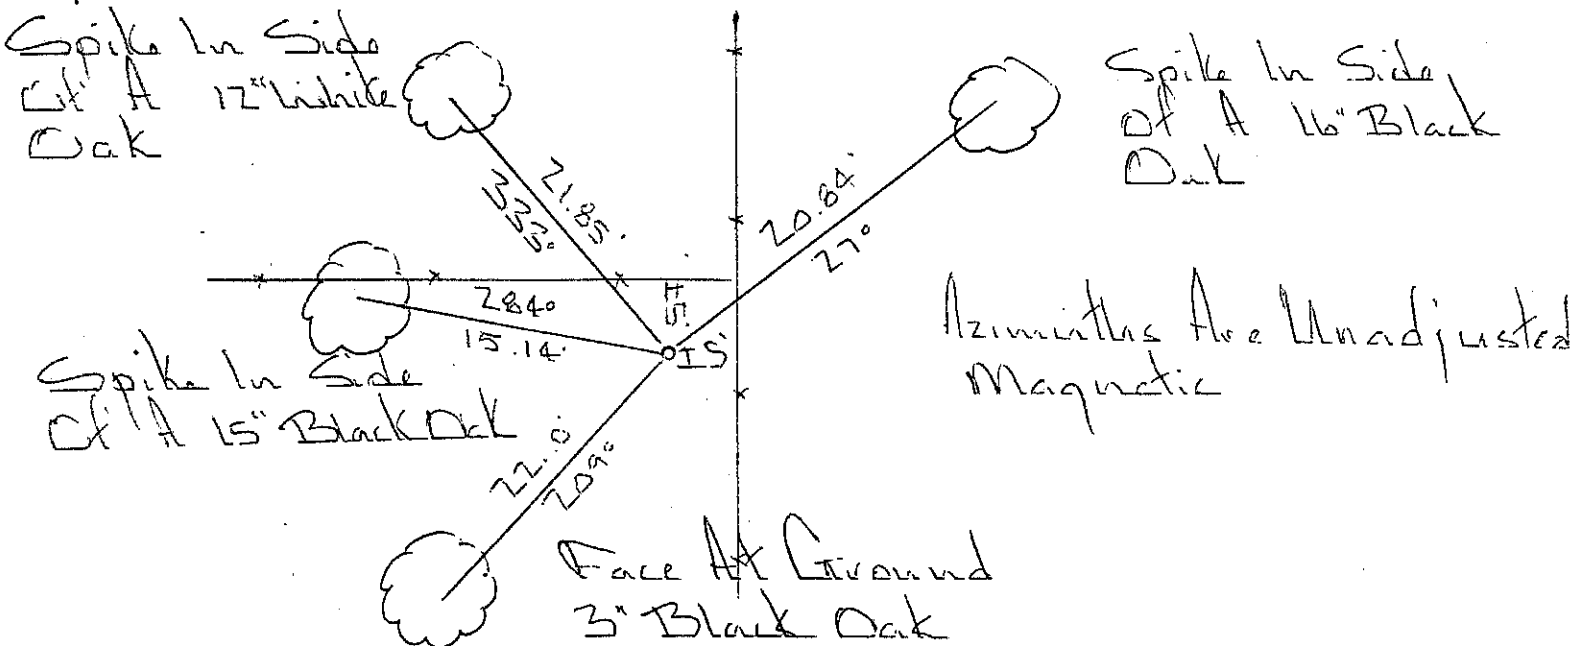 Spike In Side
Of A 12" White
Oak
Spike In Side
Of A 16" Black
Oak
21.85'
333°
20.84'
27°
284°
15.14'
IS
Azimuths Are Unadjusted
Magnetic
Spike In Side
Of A 15" Black Oak
209°
Face At Ground
3" Black Oak